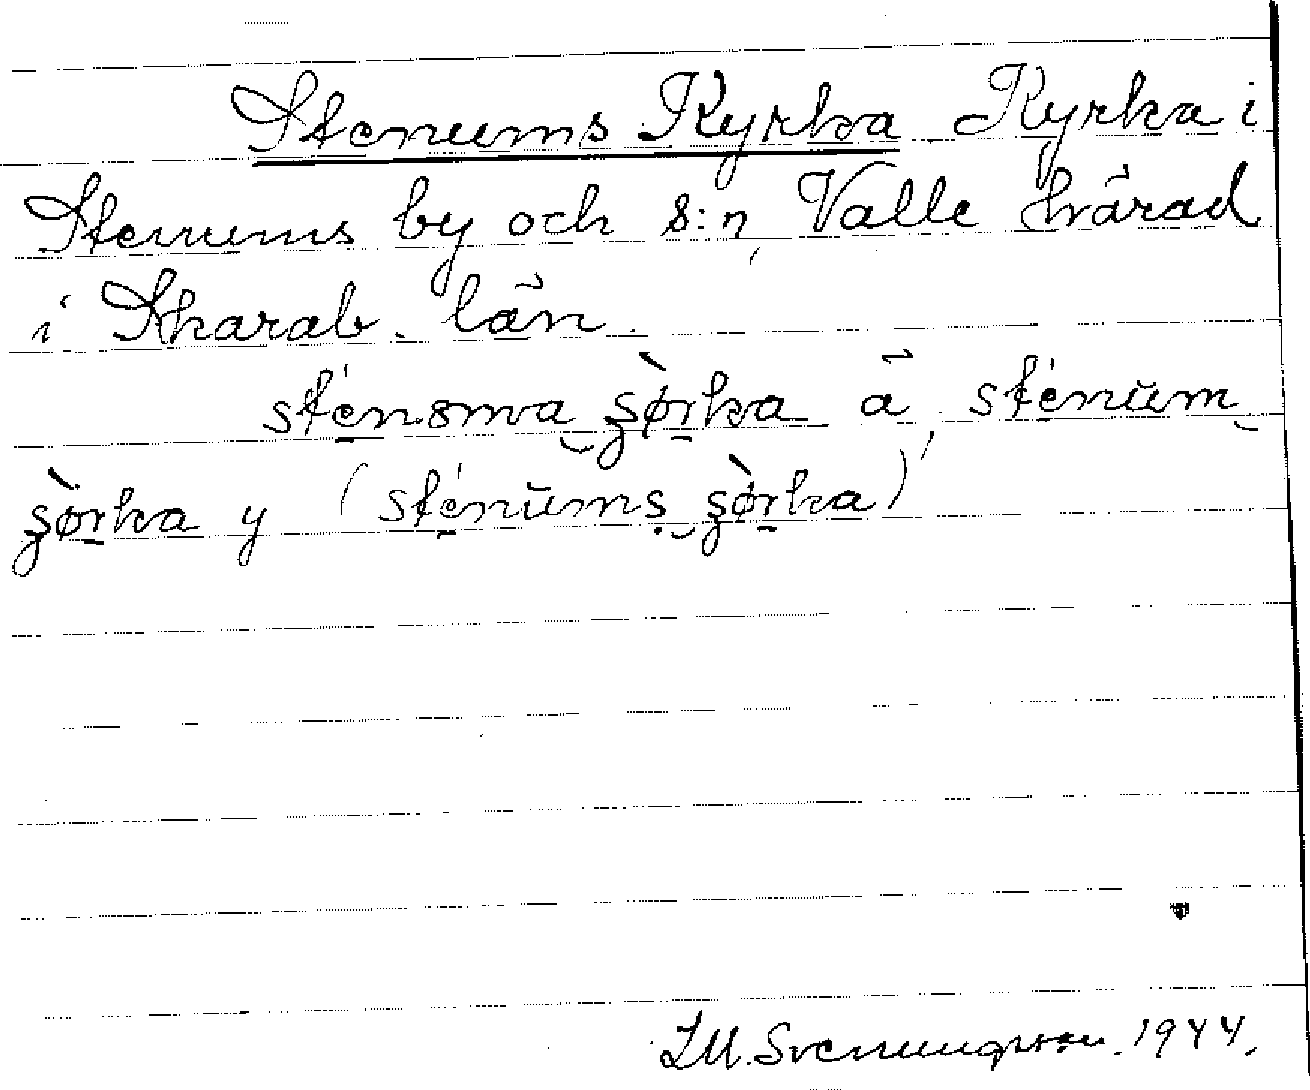 Stenums Kyrka Kyrka i
Stenums by och s:n, Valle härad
i Skarab. län.
sténsma şø̀rka ä, sténŭm
şø̀rka y (sténŭms şø̀rka)
J M. Svenungsson. 1944.